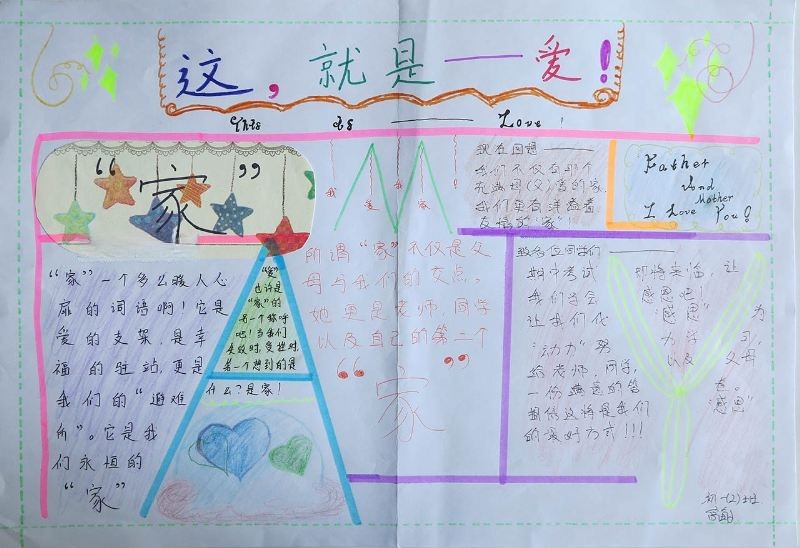 这，就是——爱！
This is —— Love!
“家”
“家”一个多么暖人心
扉的词语啊！它是
爱的支架，是幸
福的驻站，更是
我们的“避难
所”。它是我
们永恒的
“家”
“爱”
也许是
“家”的
另一个称呼
吧！当我们
失败时，受挫时，
第一个想到的是
什么？是家！
我
爱
我
家
所谓“家”不仅是父
母与我们的交点。
她更是老师，同学
以及自己的第二个
“家”
现在回想——
我们不仅有那个
充满母（父）爱的家，
我们更有洋溢着
友情的“家”！
Father
And
Mother
I Love You!
致各位同学们
期中考试
我们学会
让我们化
“动力”努
给老师，同学，
一份满意的答
我们
的最好方式!!!
即将来临，让
感恩吧！
“感恩”为
力学习，
以及父母
卷。
“感恩”
初一(2)班